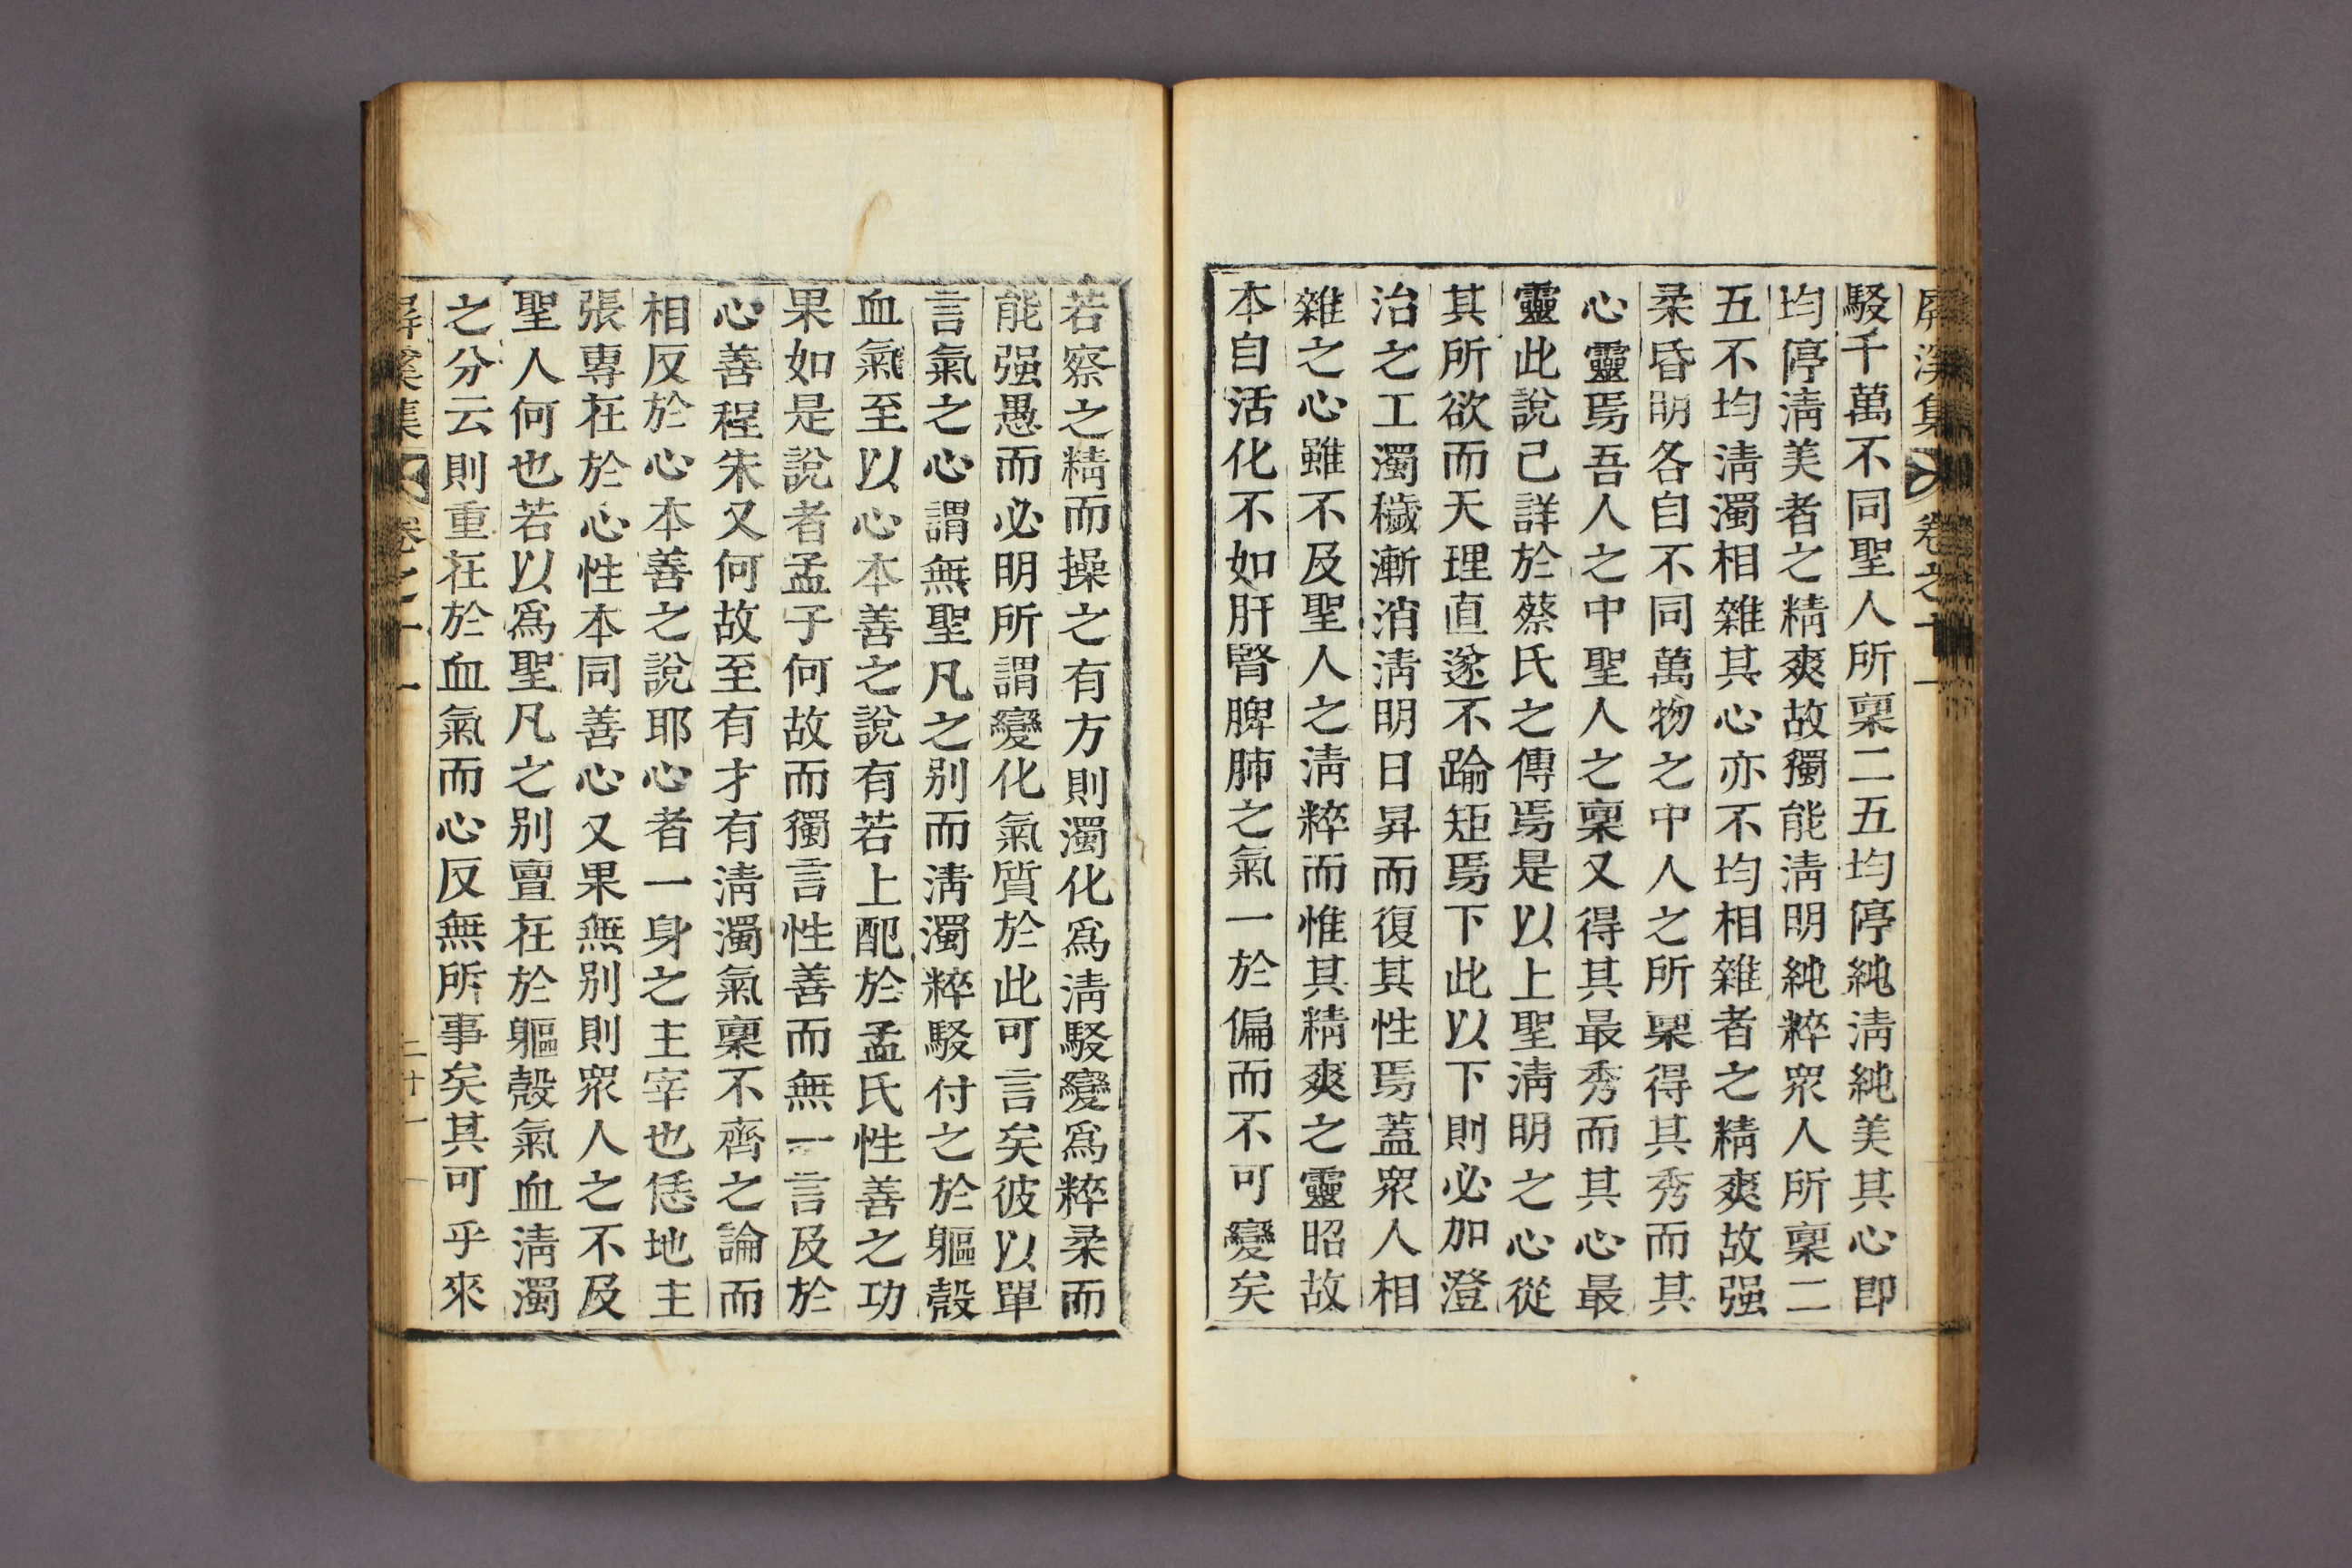 屛溪集 卷之十一
駁千萬不同聖人所稟二五均停純淸純美其心卽
均停淸美者之精爽故獨能淸明純粹衆人所稟二
五不均淸濁相雜其心亦不均相雜者之精爽故强
柔昏明各自不同萬物之中人之所稟得其秀而其
心靈焉吾人之中聖人之稟又得其最秀而其心最
靈此說已詳於蔡氏之傳焉是以上聖淸明之心從
其所欲而天理直遂不踰矩焉下此以下則必加澄
治之工濁穢漸消淸明日昇而復其性焉蓋衆人相
雜之心雖不及聖人之淸粹而惟其精爽之靈昭故
本自活化不如肝腎脾肺之氣一於偏而不可變矣
若察之精而操之有方則濁化爲淸駁變爲粹柔而
能强愚而必明所謂變化氣質於此可言矣彼以單
言氣之心謂無聖凡之别而淸濁粹駁付之於軀殼
血氣至以心本善之說有若上配於孟氏性善之功
果如是說者孟子何故而獨言性善而無一言及於
心善程朱又何故至有才有淸濁氣稟不齊之論而
相反於心本善之說耶心者一身之主宰也恁地主
張專在於心性本同善心又果無别則衆人之不及
聖人何也若以爲聖凡之别亶在於軀殼氣血淸濁
之分云則重在於血氣而心反無所事矣其可乎來
屛溪集 卷之十一 二十一